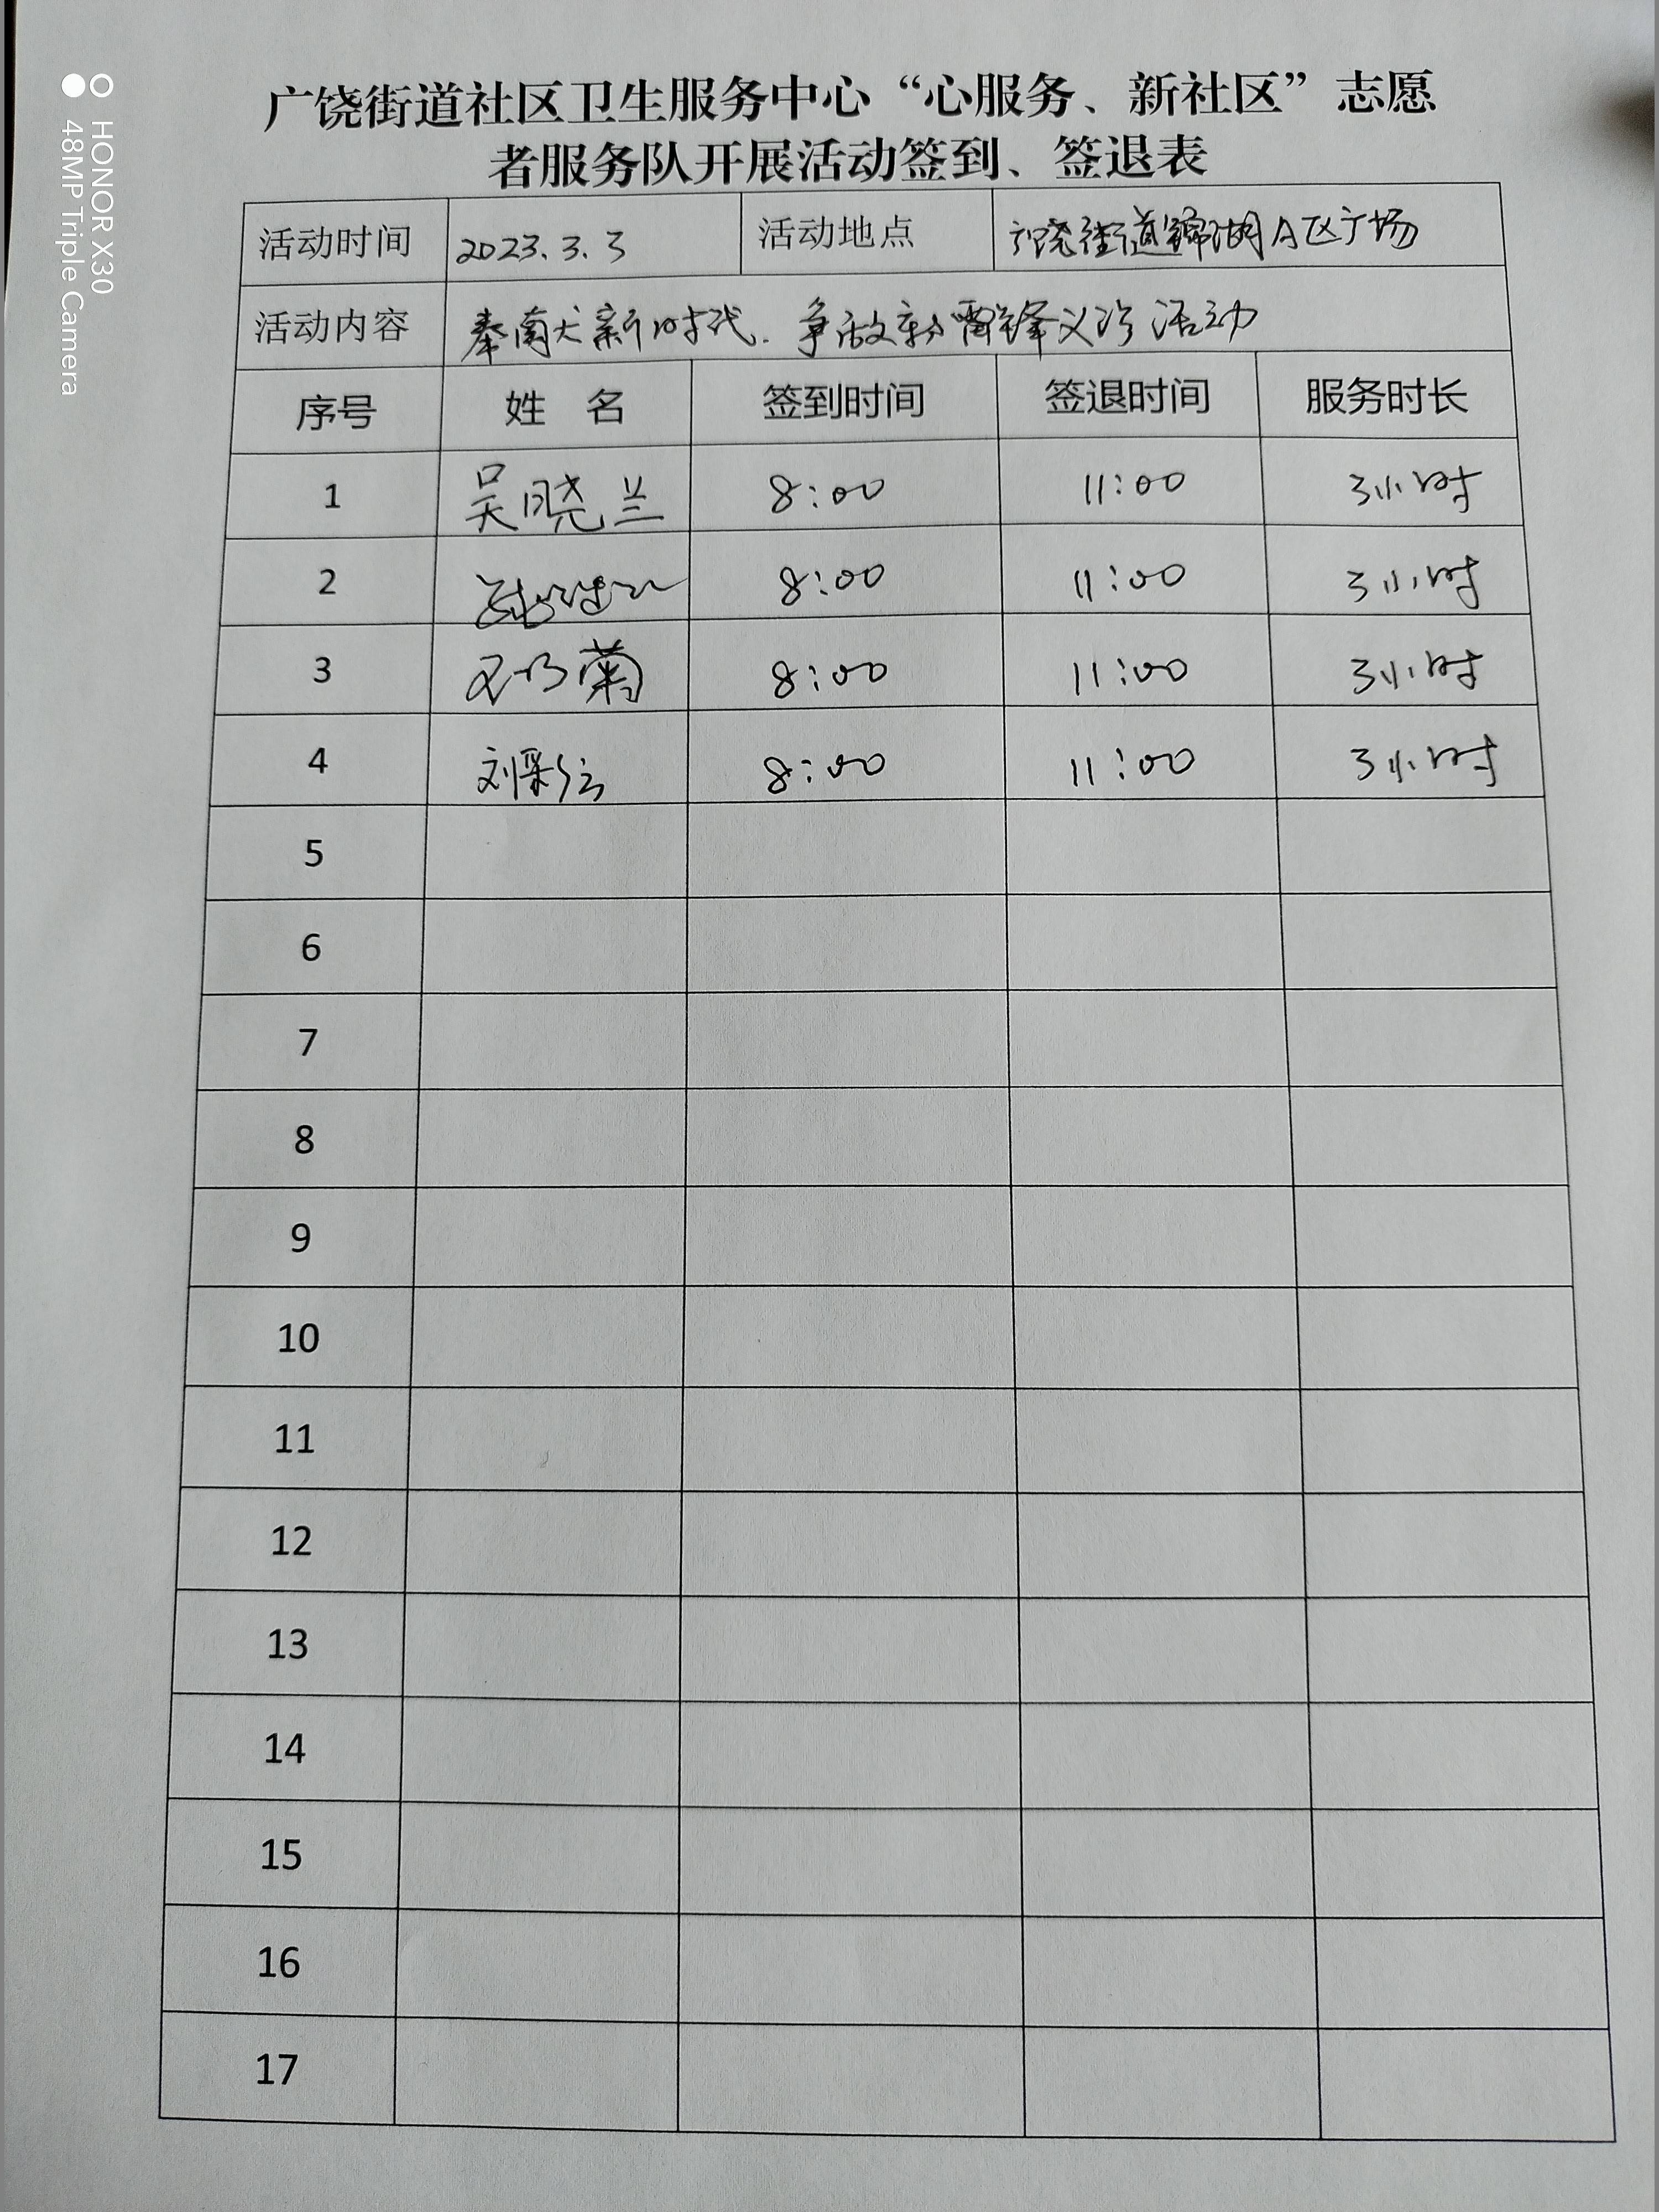 广饶街道社区卫生服务中心“心服务、新社区”志愿
者服务队开展活动签到、签退表
活动时间 2023.3.3 活动地点 广饶街道锦湖A区广场
活动内容 新时代.争做新雷锋义诊活动
序号 姓 名 签到时间 签退时间 服务时长
1 吴晓兰 8:00 11:00 3小时
2 8:00 11:00 3小时
3 菊 8:00 11:00 3小时
4 刘彩云 8:00 11:00 3小时
5
6
7
8
9
10
11
12
13
14
15
16
17
HONOR X30
48MP Triple Camera